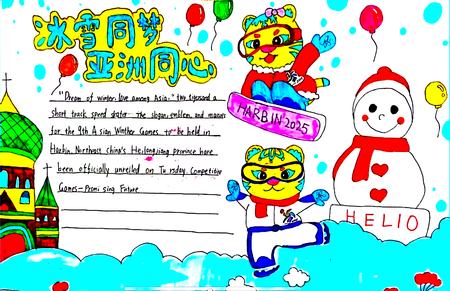 冰雪同梦
亚洲同心
"Dream of winter, love among Asia." two
short track speed skater The slogan, emblem, and mascots
for the 9th Asian Winther Games to be held in
Harbin, Northeast China's Heilongjiang province have
been officially unveiled on Tursday. Competitive
Games-Promi sing Future
HARBIN 2025
HELIO